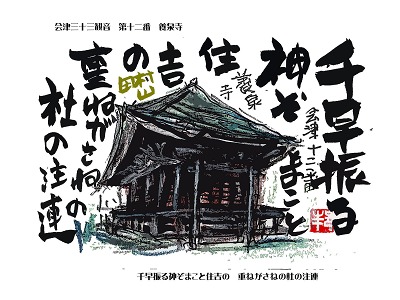 会津三十三観音　第十二番　養泉寺
千早振る
神ぞまこと
住
吉
の
重ねがさねの
杜の注連
会津十二番
養泉寺
田村山
千早振る神ぞまこと住吉の　重ねがさねの杜の注連